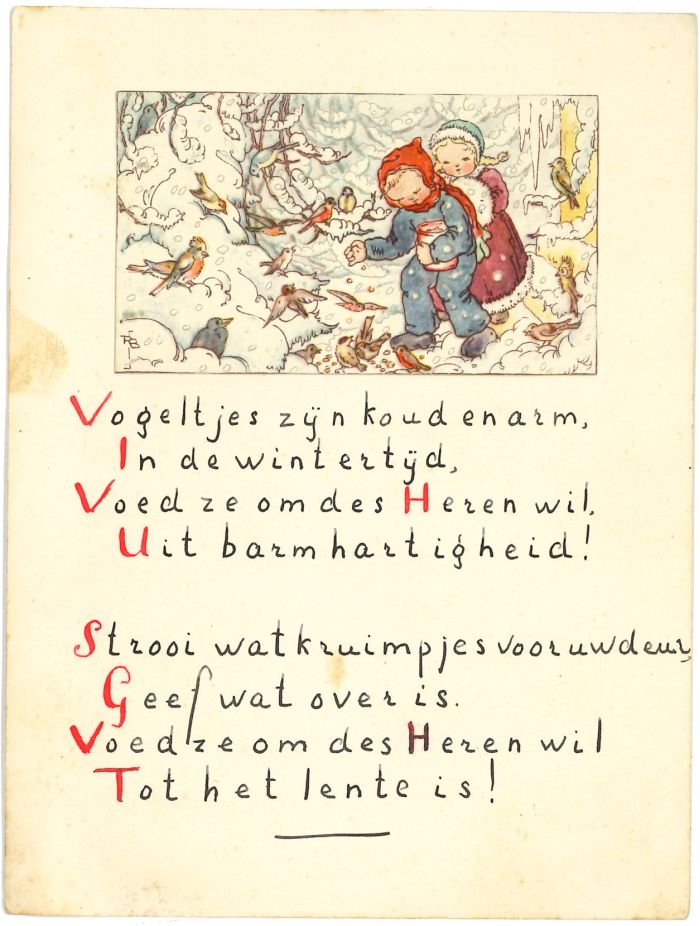 RB
Vogeltjes zijn koud en arm,
In de wintertijd,
Voed ze om des Heren wil,
Uit barmhartigheid!
Strooi wat kruimpjes voor uw deur,
Geef wat over is.
Voed ze om des Heren wil
Tot het lente is!